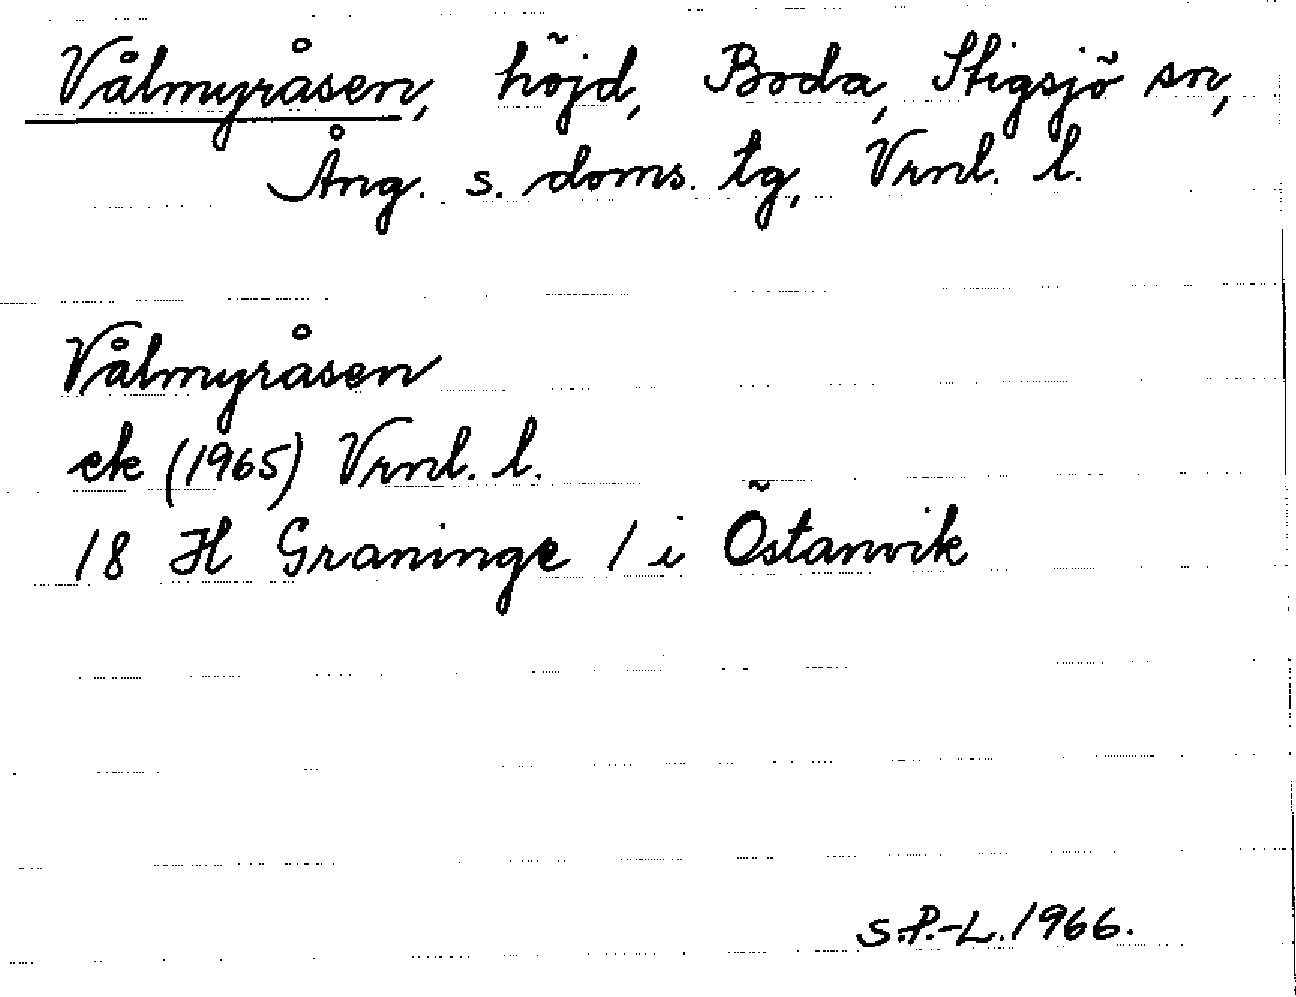 Vålmyråsen, höjd, Boda, Stigsjö sn,
Ång. s. doms. tg, Vrnl. l.
Vålmyråsen
ek (1965) Vrnl. l.
18 H Graninge 1 i Östanvik
S.P.-L. 1966.